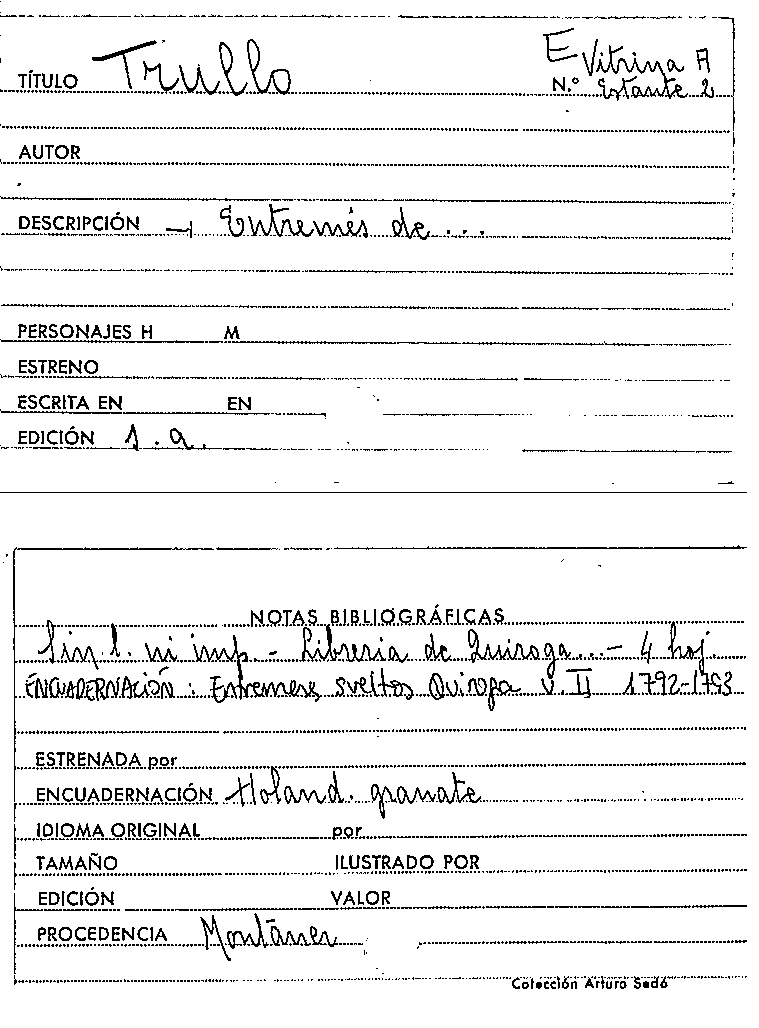 TÍTULO Trullo E Vitrina A
N.º Estante 2
AUTOR
DESCRIPCIÓN Entremés de ...
PERSONAJES H M
ESTRENO
ESCRITA EN EN
EDICIÓN s.a.
NOTAS BIBLIOGRÁFICAS
Sin l. ni imp. - Libreria de Quiroga...- 4 hoj.
ENCUADERNACIÓN: Entremeses sveltos Quiroga v. II 1792-1793
ESTRENADA por
ENCUADERNACIÓN Holand. granate
IDIOMA ORIGINAL por
TAMAÑO ILUSTRADO POR
EDICIÓN VALOR
PROCEDENCIA Montaner
Colección Arturo Sedó